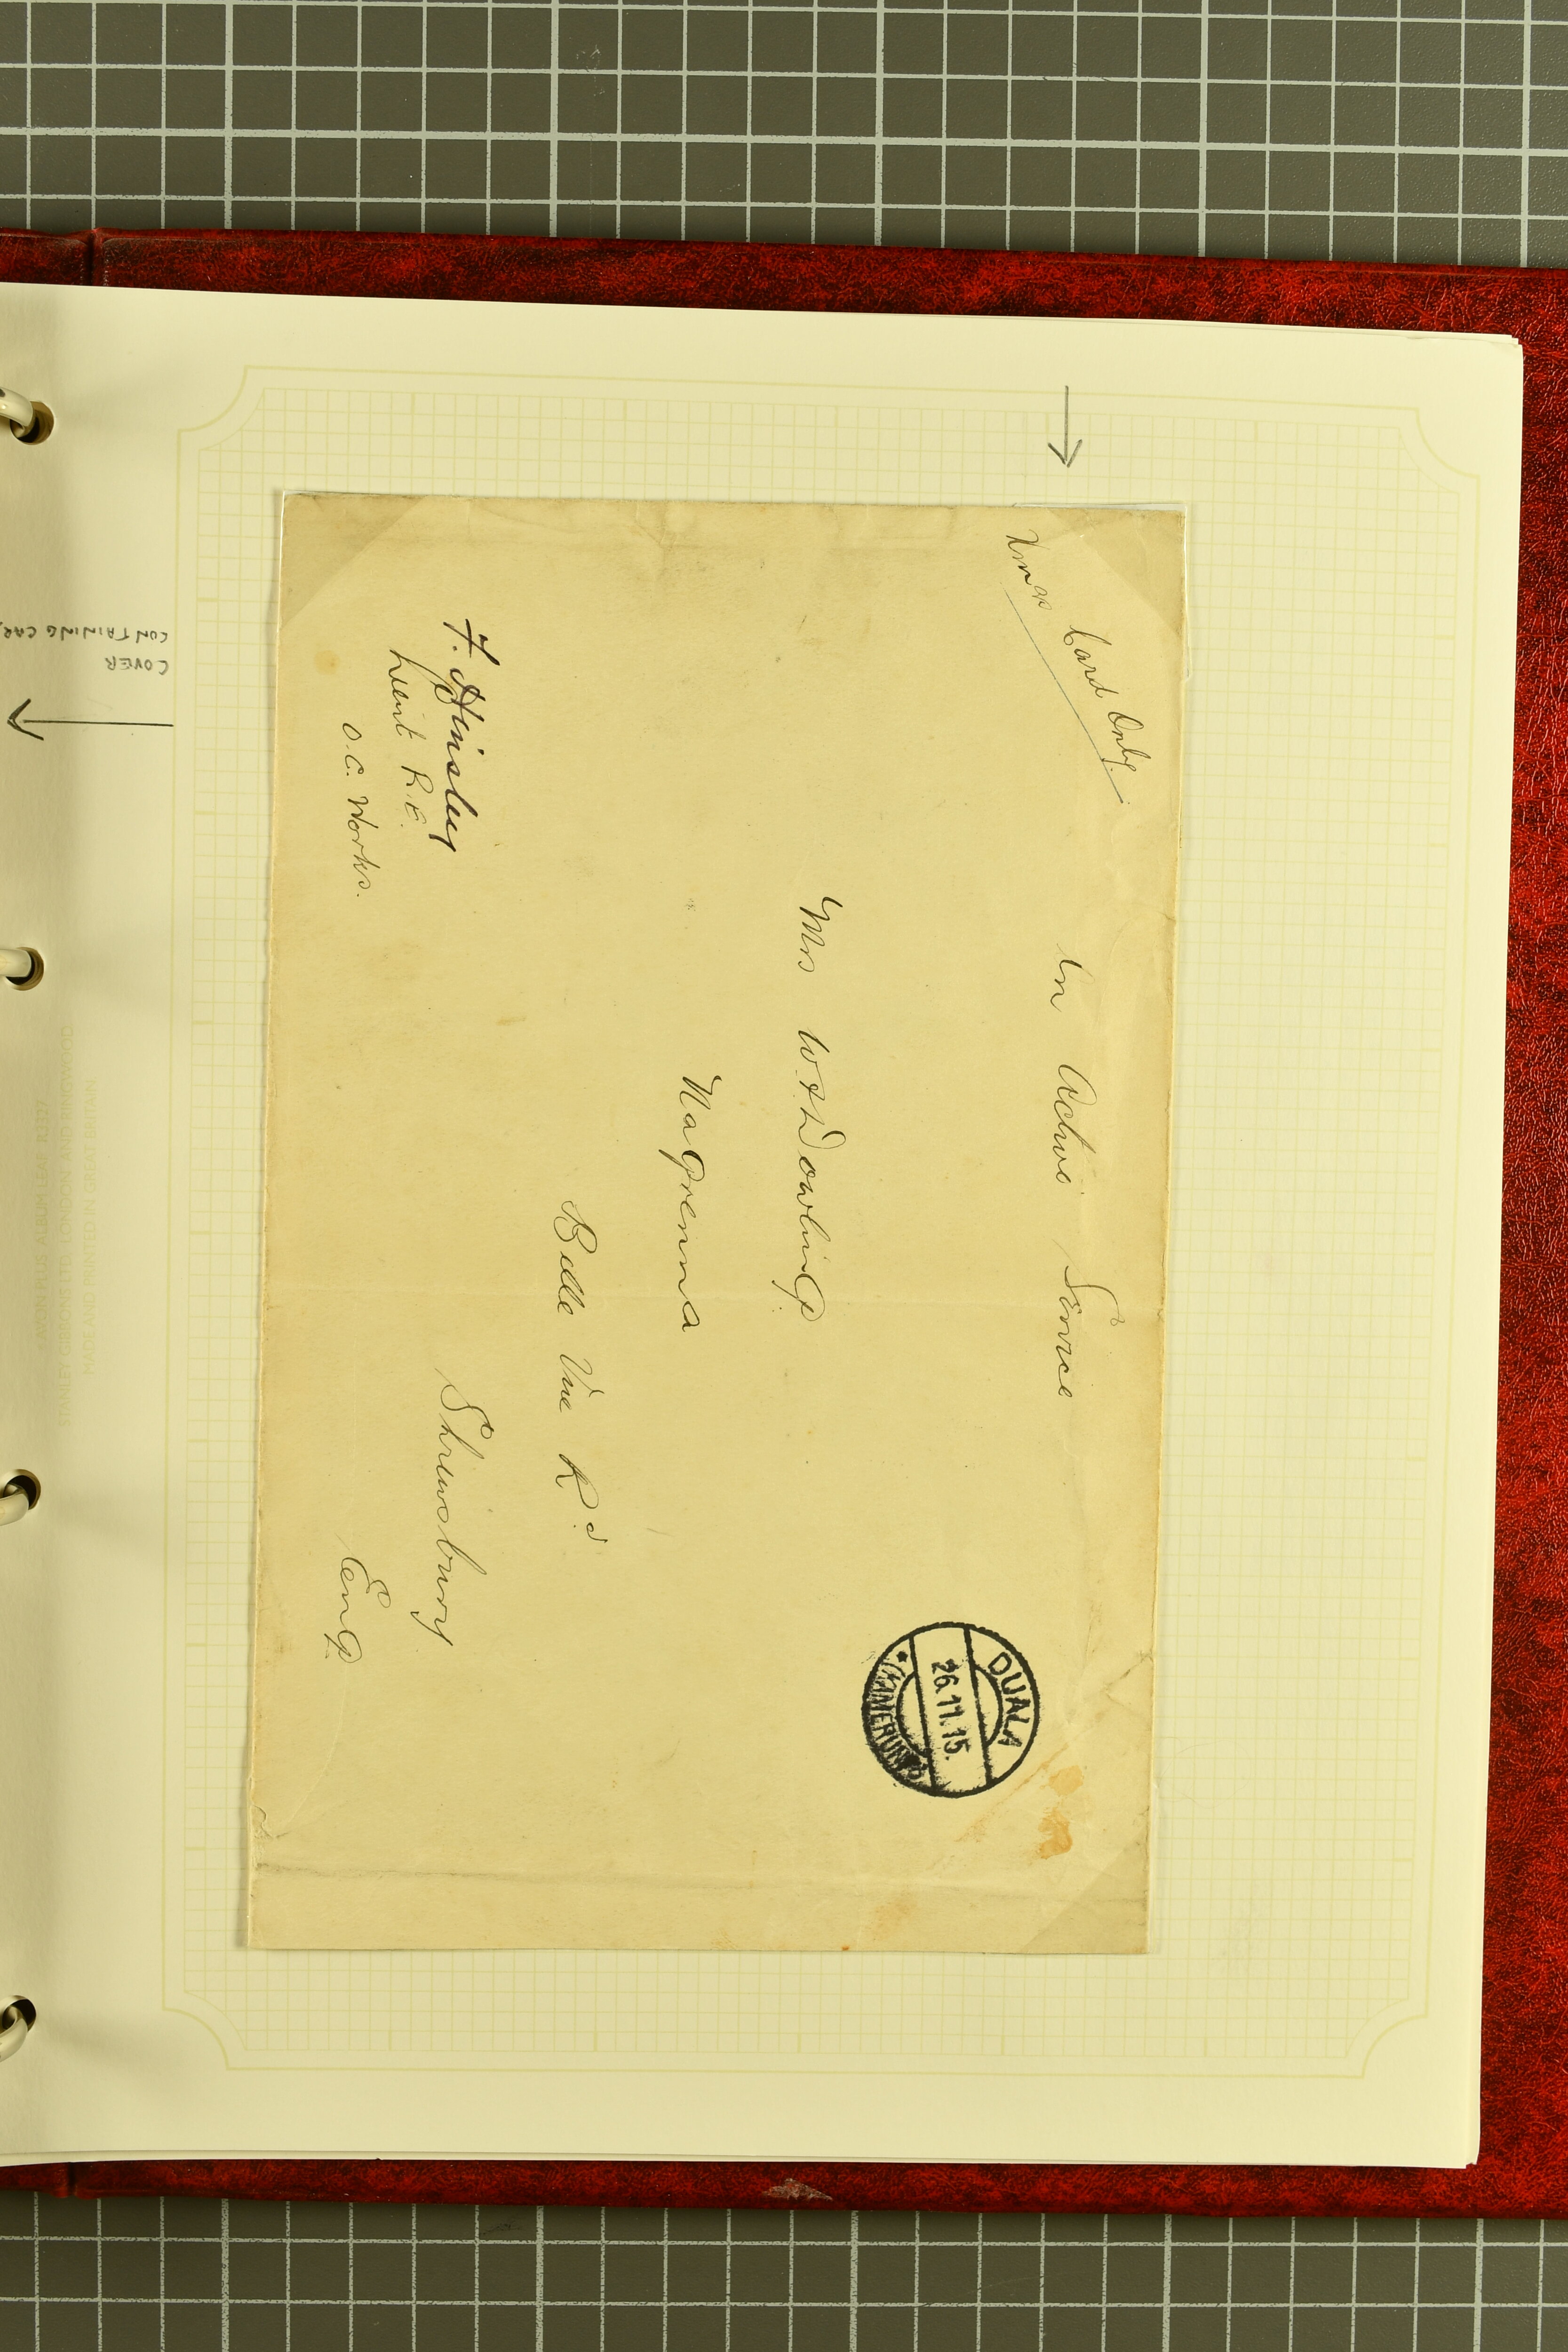 Xmas Card Only.
On Active Service
Mrs W F L Dowling
Nagrenna
Belle Vue Rd
Shrewsbury
Eng
F. Hinsley
Lieut R.E.
O.C. Works.
DUALA
26.11.15.
KAMERUN
COVER
CONTAINING CAR
STANLEY GIBBONS LTD, LONDON AND RINGWOOD
MADE AND PRINTED IN GREAT BRITAIN